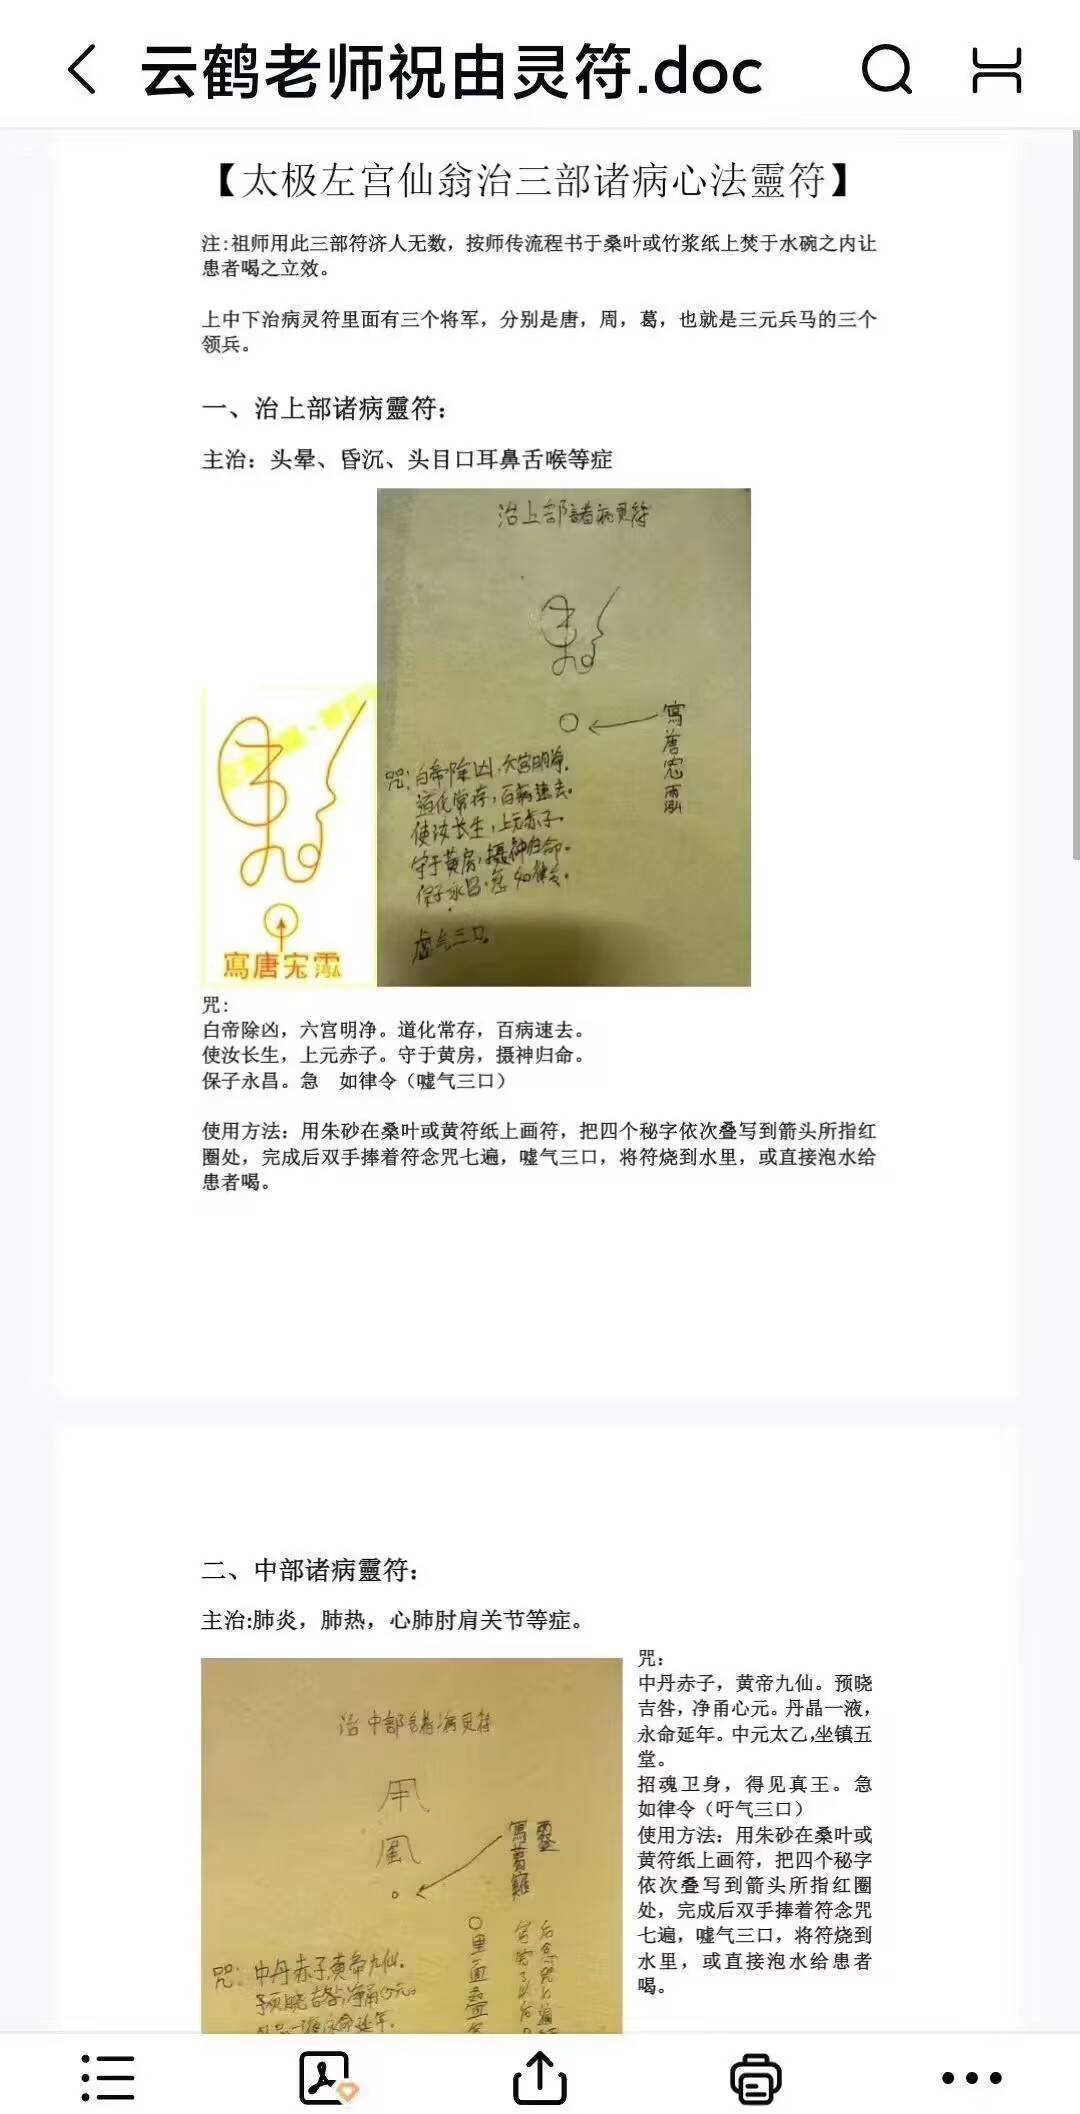 云鹤老师祝由灵符.doc
【太极左宫仙翁治三部诸病心法靈符】
注:祖师用此三部符济人无数，按师传流程书于桑叶或竹浆纸上焚于水碗之内让
患者喝之立效。
上中下治病灵符里面有三个将军，分别是唐，周，葛，也就是三元兵马的三个
领兵。
一、治上部诸病靈符：
主治：头晕、昏沉、头目口耳鼻舌喉等症
治上部諸病灵符
咒:白帝除凶,六宫明净.
道化常存,百病速去.
使汝长生,上元赤子.
守于黄房,摄神归命.
保子永昌.急 如律令.
嘘气三口
寫唐宏
寫唐宏
咒：
白帝除凶，六宫明净。道化常存，百病速去。
使汝长生，上元赤子。守于黄房，摄神归命。
保子永昌。急　如律令（嘘气三口）
使用方法：用朱砂在桑叶或黄符纸上画符，把四个秘字依次叠写到箭头所指红
圈处，完成后双手捧着符念咒七遍，嘘气三口，将符烧到水里，或直接泡水给
患者喝。
二、中部诸病靈符：
主治:肺炎，肺热，心肺肘肩关节等症。
治中部諸病灵符
寫葛
咒:中丹赤子,黄帝九仙.
预晓吉咎,净甬心元.
永命延年.
咒：
中丹赤子，黄帝九仙。预晓
吉咎，净甬心元。丹晶一液，
永命延年。中元太乙,坐镇五
堂。
招魂卫身，得见真王。急
如律令（吁气三口）
使用方法：用朱砂在桑叶或
黄符纸上画符，把四个秘字
依次叠写到箭头所指红圈
处，完成后双手捧着符念咒
七遍，嘘气三口，将符烧到
水里，或直接泡水给患者
喝。